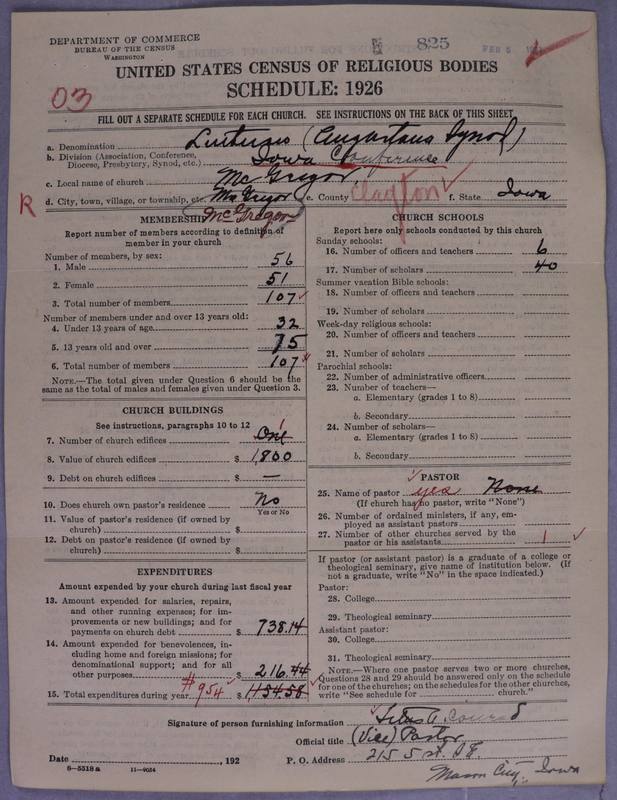 DEPARTMENT OF COMMERCE
BUREAU OF THE CENSUS
WASHINGTON
825
FEB 5
UNITED STATES CENSUS OF RELIGIOUS BODIES
SCHEDULE: 1926
03
FILL OUT A SEPARATE SCHEDULE FOR EACH CHURCH. SEE INSTRUCTIONS ON THE BACK OF THIS SHEET
a. Denomination Lutheran (Augustana Synod)
b. Division (Association, Conference, Diocese, Presbytery, Synod, etc.) Iowa Conference
c. Local name of church McGregor
R d. City, town, village, or township, etc. McGregor e. County Clayton f. State Iowa
McGregor
MEMBERS
Report number of members according to definition of member in your church
Number of members, by sex:
1. Male 56
2. Female 51
3. Total number of members 107
Number of members under and over 13 years old:
4. Under 13 years of age 32
5. 13 years old and over 75
6. Total number of members 107
NOTE.—The total given under Question 6 should be the
same as the total of males and females given under Question 3.
CHURCH BUILDINGS
See instructions, paragraphs 10 to 12
7. Number of church edifices One 1
8. Value of church edifices $ 1,800
9. Debt on church edifices $ —
10. Does church own pastor's residence No
Yes or No
11. Value of pastor's residence (if owned by
church) $
12. Debt on pastor's residence (if owned by
church) $
EXPENDITURES
Amount expended by your church during last fiscal year
13. Amount expended for salaries, repairs,
and other running expenses; for im-
provements or new buildings; and for
payments on church debt $ 738.14
14. Amount expended for benevolences, in-
cluding home and foreign missions; for
denominational support; and for all
other purposes $ 216.44
15. Total expenditures during year $954 $ 1,154.58
CHURCH SCHOOLS
Report here only schools conducted by this church
Sunday schools:
16. Number of officers and teachers 6
17. Number of scholars 40
Summer vacation Bible schools:
18. Number of officers and teachers
19. Number of scholars
Week-day religious schools:
20. Number of officers and teachers
21. Number of scholars
Parochial schools:
22. Number of administrative officers
23. Number of teachers—
a. Elementary (grades 1 to 8)
b. Secondary
24. Number of scholars—
a. Elementary (grades 1 to 8)
b. Secondary
PASTOR
25. Name of pastor yes None
(If church has no pastor, write "None")
26. Number of ordained ministers, if any, em-
ployed as assistant pastors
27. Number of other churches served by the
pastor or his assistants 1
If pastor (or assistant pastor) is a graduate of a college or
theological seminary, give name of institution below. (If
not a graduate, write "No" in the space indicated.)
Pastor:
28. College
29. Theological seminary
Assistant pastor:
30. College
31. Theological seminary
NOTE.—Where one pastor serves two or more churches,
Questions 28 and 29 should be answered only on the schedule
for one of the churches; on the schedules for the other churches,
write "See schedule for church."
Signature of person furnishing information Titus A Conrad
Official title (Vice) Pastor
Date , 192 P. O. Address 215 5 st. S E.
Mason City, Iowa
8—5518 a 11—9034